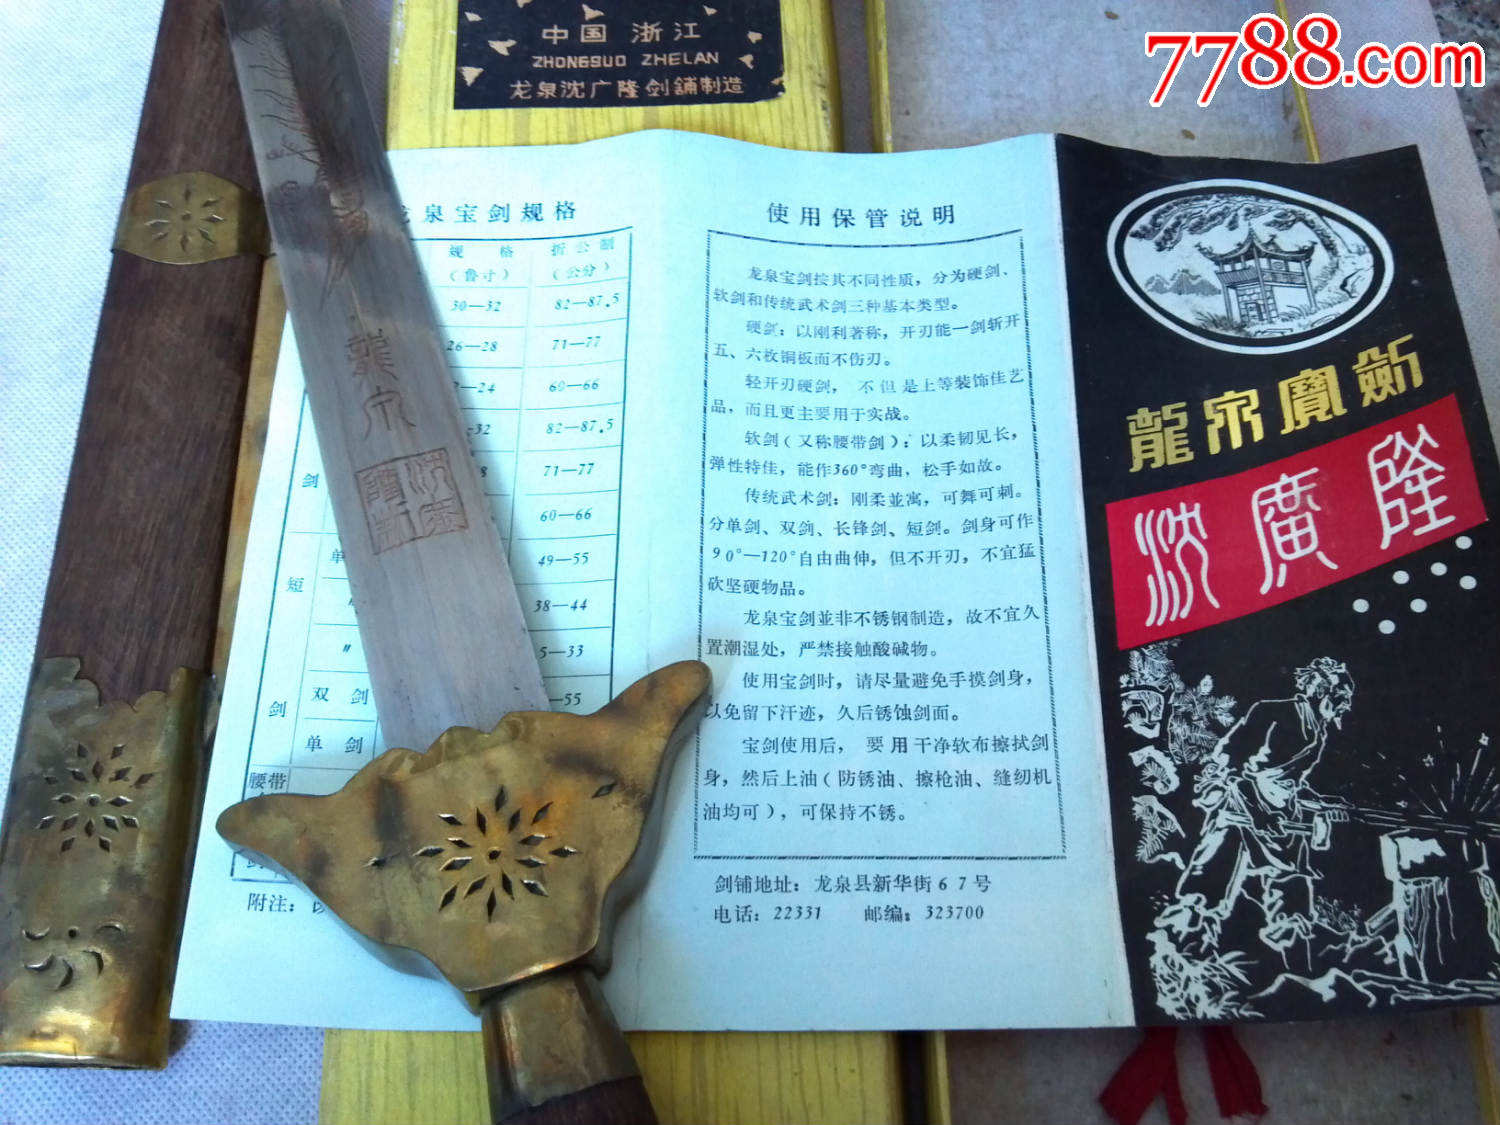 7788.com
中国 浙江
ZHONGGUO ZHELAN
龙泉沈广隆剑舖制造
龙泉宝剑规格
规 格 折公制
(鲁寸) (公分)
30—32 82—87.5
26—28 71—77
—24 60—66
—32 82—87.5
剑 71—77
60—66
短 单 49—55
38—44
〃 —33
剑 双剑 —55
单剑
腰带
附注:
龍泉
沈廣
使用保管说明
龙泉宝剑按其不同性质,分为硬剑、
软剑和传统武术剑三种基本类型。
硬剑:以刚利著称,开刃能一剑斩开
五、六枚铜板而不伤刃。
轻开刃硬剑, 不但是上等装饰佳艺
品,而且更主要用于实战。
软剑(又称腰带剑):以柔韧见长,
弹性特佳,能作360°弯曲,松手如故。
传统武术剑:刚柔並寓,可舞可刺。
分单剑、双剑、长锋剑、短剑。剑身可作
90°—120°自由曲伸,但不开刃,不宜猛
砍坚硬物品。
龙泉宝剑並非不锈钢制造,故不宜久
置潮湿处,严禁接触酸碱物。
使用宝剑时,请尽量避免手摸剑身,
以免留下汗迹,久后锈蚀剑面。
宝剑使用后, 要用干净软布擦拭剑
身,然后上油(防锈油、擦枪油、缝纫机
油均可),可保持不锈。
剑铺地址:龙泉县新华街67号
电话:22331 邮编:323700
龍泉寶劍
沈廣隆